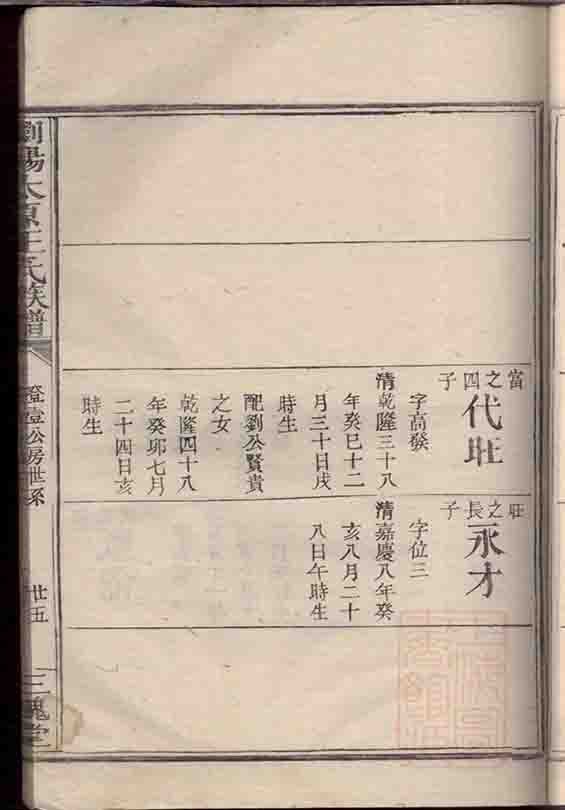 富之四子
代旺
字高發
清乾隆三十八
年癸巳十二
月三十日戌
時生
配劉公賢貴
之女
乾隆四十八
年癸卯七月
二十四日亥
時生
莊之長子
永才
字位三
清嘉慶八年癸
亥八月二十
八日午時生
瀏陽太原王氏族譜
登壹公房世系
廿五
三槐堂